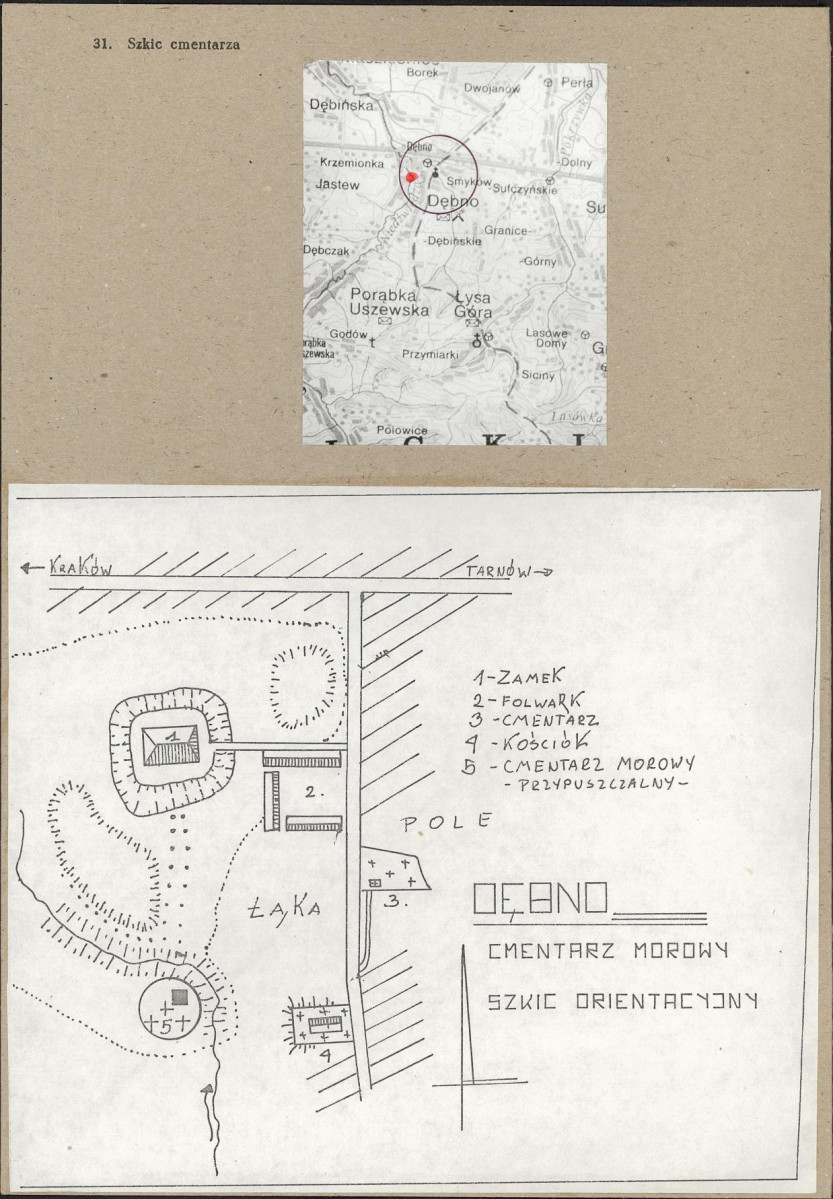 31. Szkic cmentarza
Borek
Dwojanów
Perła
Dębińska
Dębno
Krzemionka
-Dolny
Jastew
Smyków
Sufczyńskie
Dębno
Su
Granice-
-Dębińskie
Dębczak
-Górny
Porąbka
Uszewska
Łysa
Góra
Godów
Lasowe
Domy
G
Przymiarki
Siciny
Lasówka
Polowice
KRAKÓW
TARNÓW
1-ZAMEK
2-FOLWARK
3-CMENTARZ
4-KOŚCIÓŁ
5-CMENTARZ MOROWY
-PRZYPUSZCZALNY-
1
2.
POLE
3.
ŁĄKA
DĘBNO
CMENTARZ MOROWY
SZKIC ORIENTACYJNY
5
4